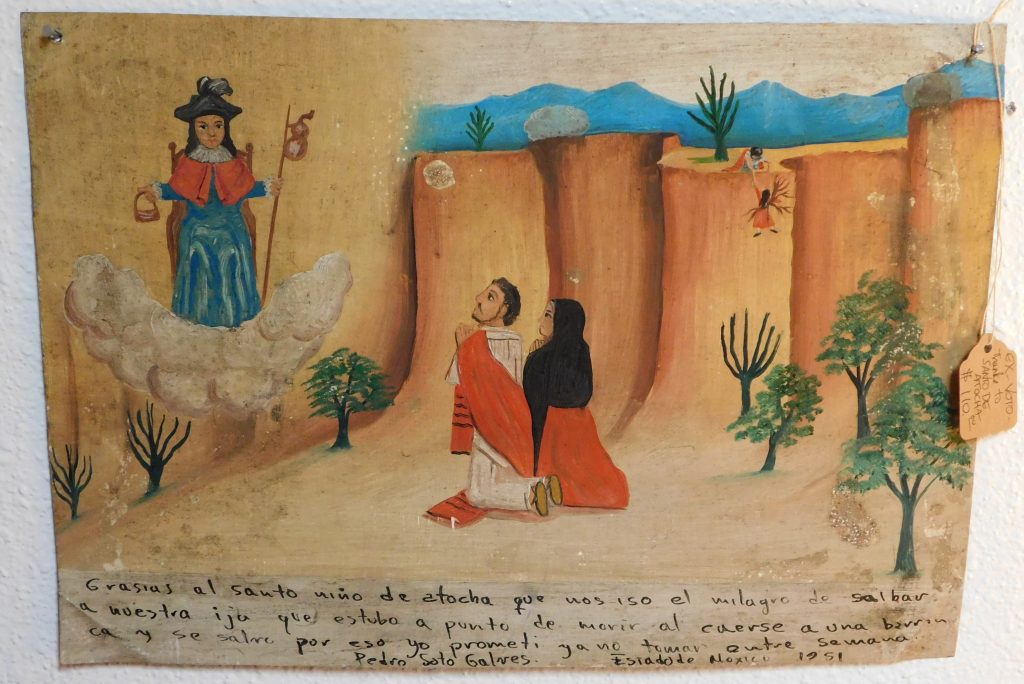 Grasias al santo niño de atocha que nos iso el milagro de salbar
a nuestra ija que estubo a punto de morir al caerse a una barrin
ca y se salvo por eso yo prometi ya no tomar entre semana
Pedro Soto Galves. Estado de Mexico 1951
EX VOTO
Thanks to
SANTO DE
ATOCHA
$110